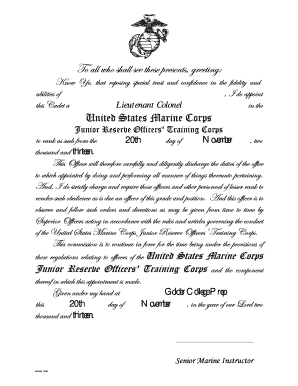 To all who shall see these presents, greeting:
Know Ye, that reposing special trust and confidence in the fidelity and
abilities of , I do appoint
this Cadet a Lieutenant Colonel in the
United States Marine Corps
Junior Reserve Officers' Training Corps
to rank as such from the 20th day of November , two
thousand and thirteen.
This Officer will therefore carefully and diligently discharge the duties of the office
to which appointed by doing and performing all manner of things thereunto pertaining.
And, I do strictly charge and require those officers and other personnel of lesser rank to
render such obedience as is due an officer of this grade and position. And this officer is to
observe and follow such orders and directions as may be given from time to time by
Superior Officers acting in accordance with the rules and articles governing the conduct
of the United States Marine Corps Junior Reserve Officers' Training Corps.
This commission is to continue in force for the time being under the provisions of
those regulations relating to officers of the United States Marine Corps
Junior Reserve Officers' Training Corps and the component
thereof in which this appointment is made.
Given under my hand at
this 20th day of November , in the year of our Lord two
thousand and thirteen.
Senior Marine Instructor